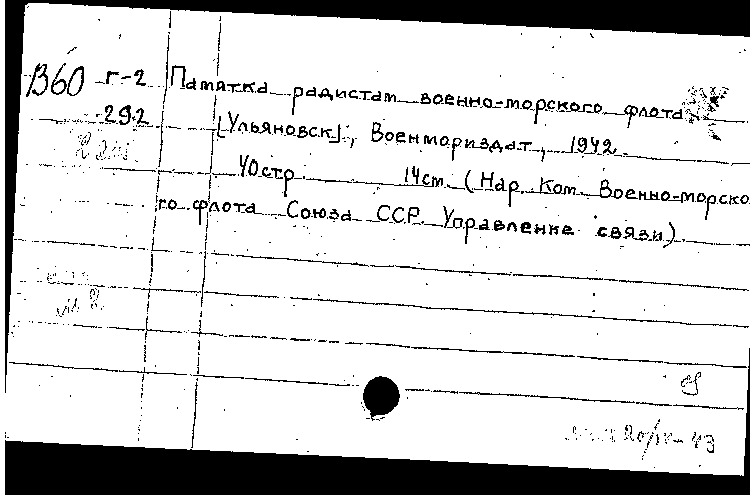 В60 г-2 Памятка радистам военно-морского флота.
-292 [Ульяновск], Воениориздат, 1942.
2 экз.
40стр. 14см. (Нар. Ком. Военно-морско
го флота Союза ССР. Управление связи).
20/IV-43